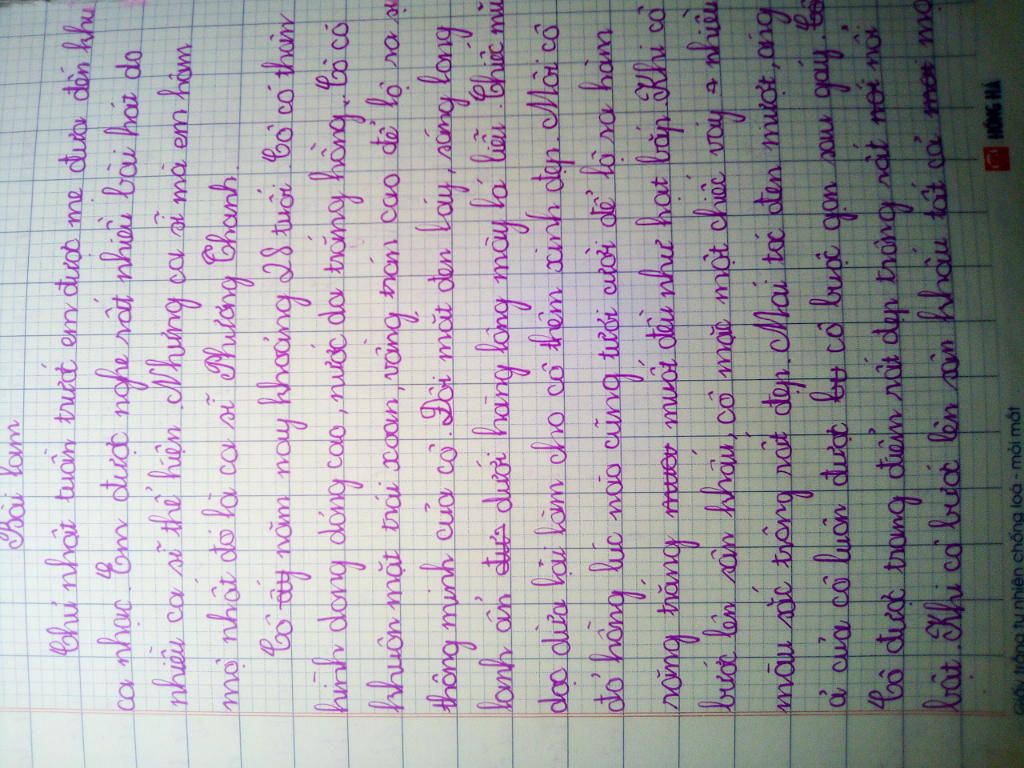 Bài làm
Chủ nhật tuần trước em được mẹ đưa đến khu
ca nhạc. Em được nghe rất nhiều bài hát do
nhiều ca sĩ thể hiện. Nhưng ca sĩ mà em hâm
mộ nhất đó là ca sĩ Phương Thanh.
Cô ấy năm nay khoảng 28 tuổi. Cô có thân
hình dong dỏng cao, nước da trắng hồng. Cô có
khuôn mặt trái xoan, vầng trán cao để lộ ra sự
thông minh của cô. Đôi mắt đen láy, sáng long
lanh ẩn dưới hàng lông mày lá liễu. Chiếc mũi
dọc dừa lại làm cho cô thêm xinh đẹp. Môi cô
đỏ hồng lúc nào cũng tươi cười để lộ ra hàm
răng trắng muốt đều như hạt bắp. Khi cô
bước lên sân khấu, cô mặc một chiếc váy nhiều
màu sắc trông rất đẹp. Mái tóc đen mượt, óng
ả của cô luôn được cô buộc gọn sau gáy.
Cô được trang điểm rất đẹp trông rất nổi
bật. Khi cô bước lên sân khấu tất cả mọ
HỒNG HÀ
Giấy trắng tự nhiên chống loá - mỏi mắt